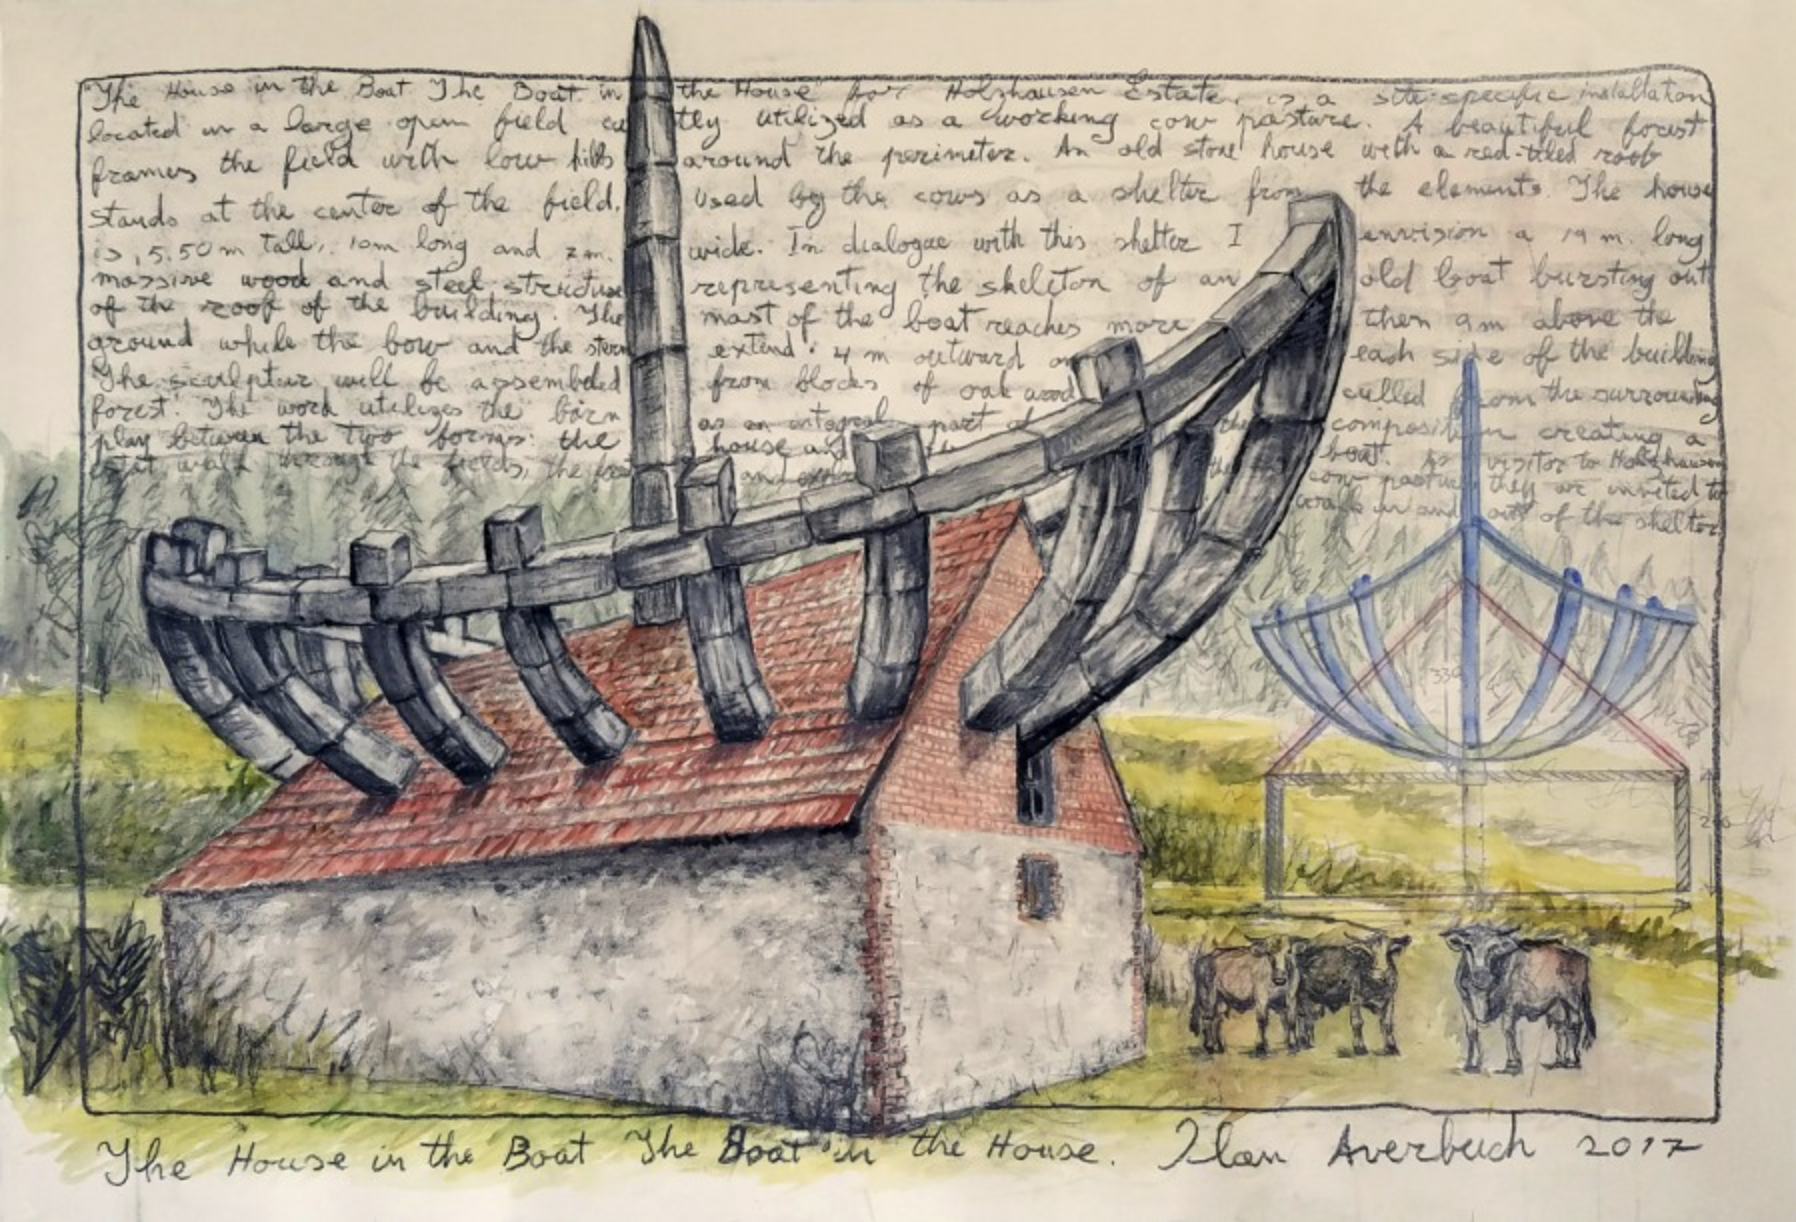 "The House in the Boat The Boat in the House" for Holzhausen Estate, is a site-specific installation
located in a large open field cu tly utilized as a working cow pasture. A beautiful forest
frames the field with low hills around the perimeter. An old stone house with a red-tiled roof
stands at the center of the field. Used by the cows as a shelter from the elements. The house
is, 5.50 m tall, 10m long and 7m. wide. In dialogue with this shelter I envision a 19 m. long
massive wood and steel structure representing the skeleton of an old boat bursting out
of the roof of the building. The mast of the boat reaches more then 9m above the
ground while the bow and the stern extend 4 m outward on each side of the building
The sculptur will be assembeled from blocks of oak wood culled from the surrounding
forest. The work utilizes the barn as an integral part of the composition creating a
play between the two forms: the house and the boat. As visitor to Holzhausen
estat walk through the fields, the and cow pasture they are invited to
walk in and out of the shelter
330
The House in the Boat The Boat in the House. Ilan Averbuch 2017